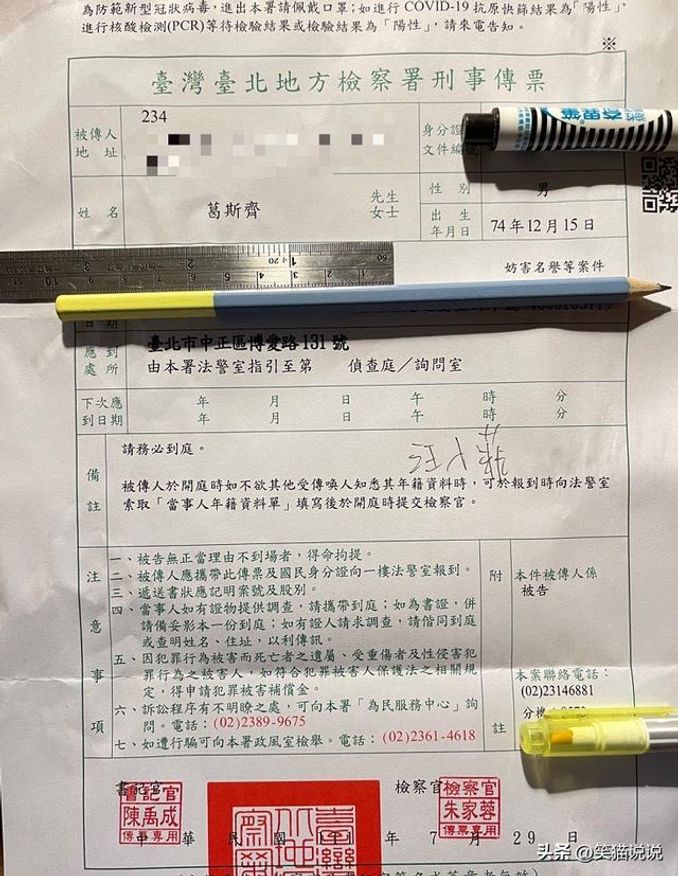 為防範新型冠狀病毒，進出本署請佩戴口罩；如進行 COVID-19 抗原快篩結果為「陽性」、
進行核酸檢測(PCR)等待檢驗結果或檢驗結果為「陽性」，請來電告知。
※
臺灣臺北地方檢察署刑事傳票
被傳人
地址
234
身分證
文件編
姓名
葛斯齊
先生
女士
性別
男
出生
年月日
74年12月15日
妨害名譽等案件
日期
應到
處所
臺北市中正區博愛路131號
由本署法警室指引至第 偵查庭／詢問室
下次應
到日期
年 月 日 午 時 分
年 月 日 午 時 分
備註
請務必到庭。
被傳人於開庭時如不欲其他受傳喚人知悉其年籍資料時，可於報到時向法警室
索取「當事人年籍資料單」填寫後於開庭時提交檢察官。
注意事項
一、被告無正當理由不到場者，得命拘提。
二、被傳人應攜帶此傳票及國民身分證向一樓法警室報到。
三、遞送書狀應記明案號及股別。
四、當事人如有證物提供調查，請攜帶到庭；如為書證，併
請備妥影本一份到庭；如有證人請求調查，請偕同到庭
或查明姓名、住址，以利傳訊。
五、因犯罪行為被害而死亡者之遺屬、受重傷者及性侵害犯
罪行為之被害人，如符合犯罪被害人保護法之相關規
定，得申請犯罪被害補償金。
六、訴訟程序有不明瞭之處，可向本署「為民服務中心」詢
問。電話：(02)2389-9675
七、如遭行騙可向本署政風室檢舉。電話：(02)2361-4618
附註
本件被傳人係
被告
本案聯絡電話：
(02)23146881
分機
書記官
書記官
陳禹成
傳票專用
檢察官
檢察官
朱家蓉
傳票專用
中華民國 年 7 月 29 日
头条 @笑猫说说